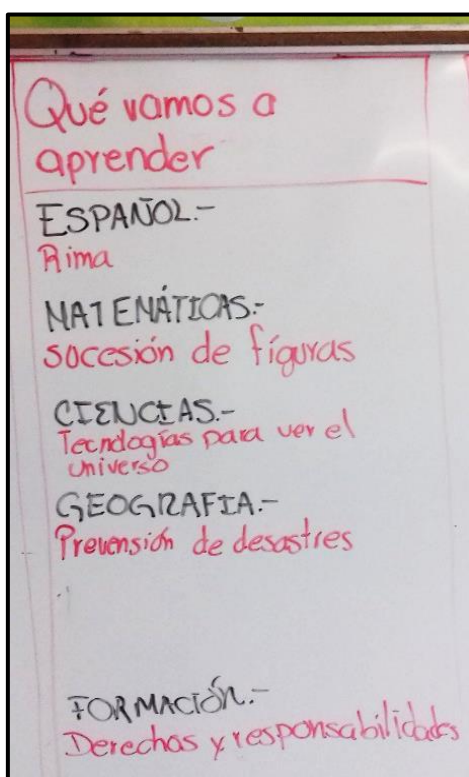 Qué vamos a
aprender
ESPAÑOL.-
Rima
MATEMÁTICAS.-
socesión de fíguras
CIENCIAS.-
Tecnologías para ver el
universo
GEOGRAFIA.-
Prevensión de desastres
FORMACIÓN.-
Derechos y responsabilidades